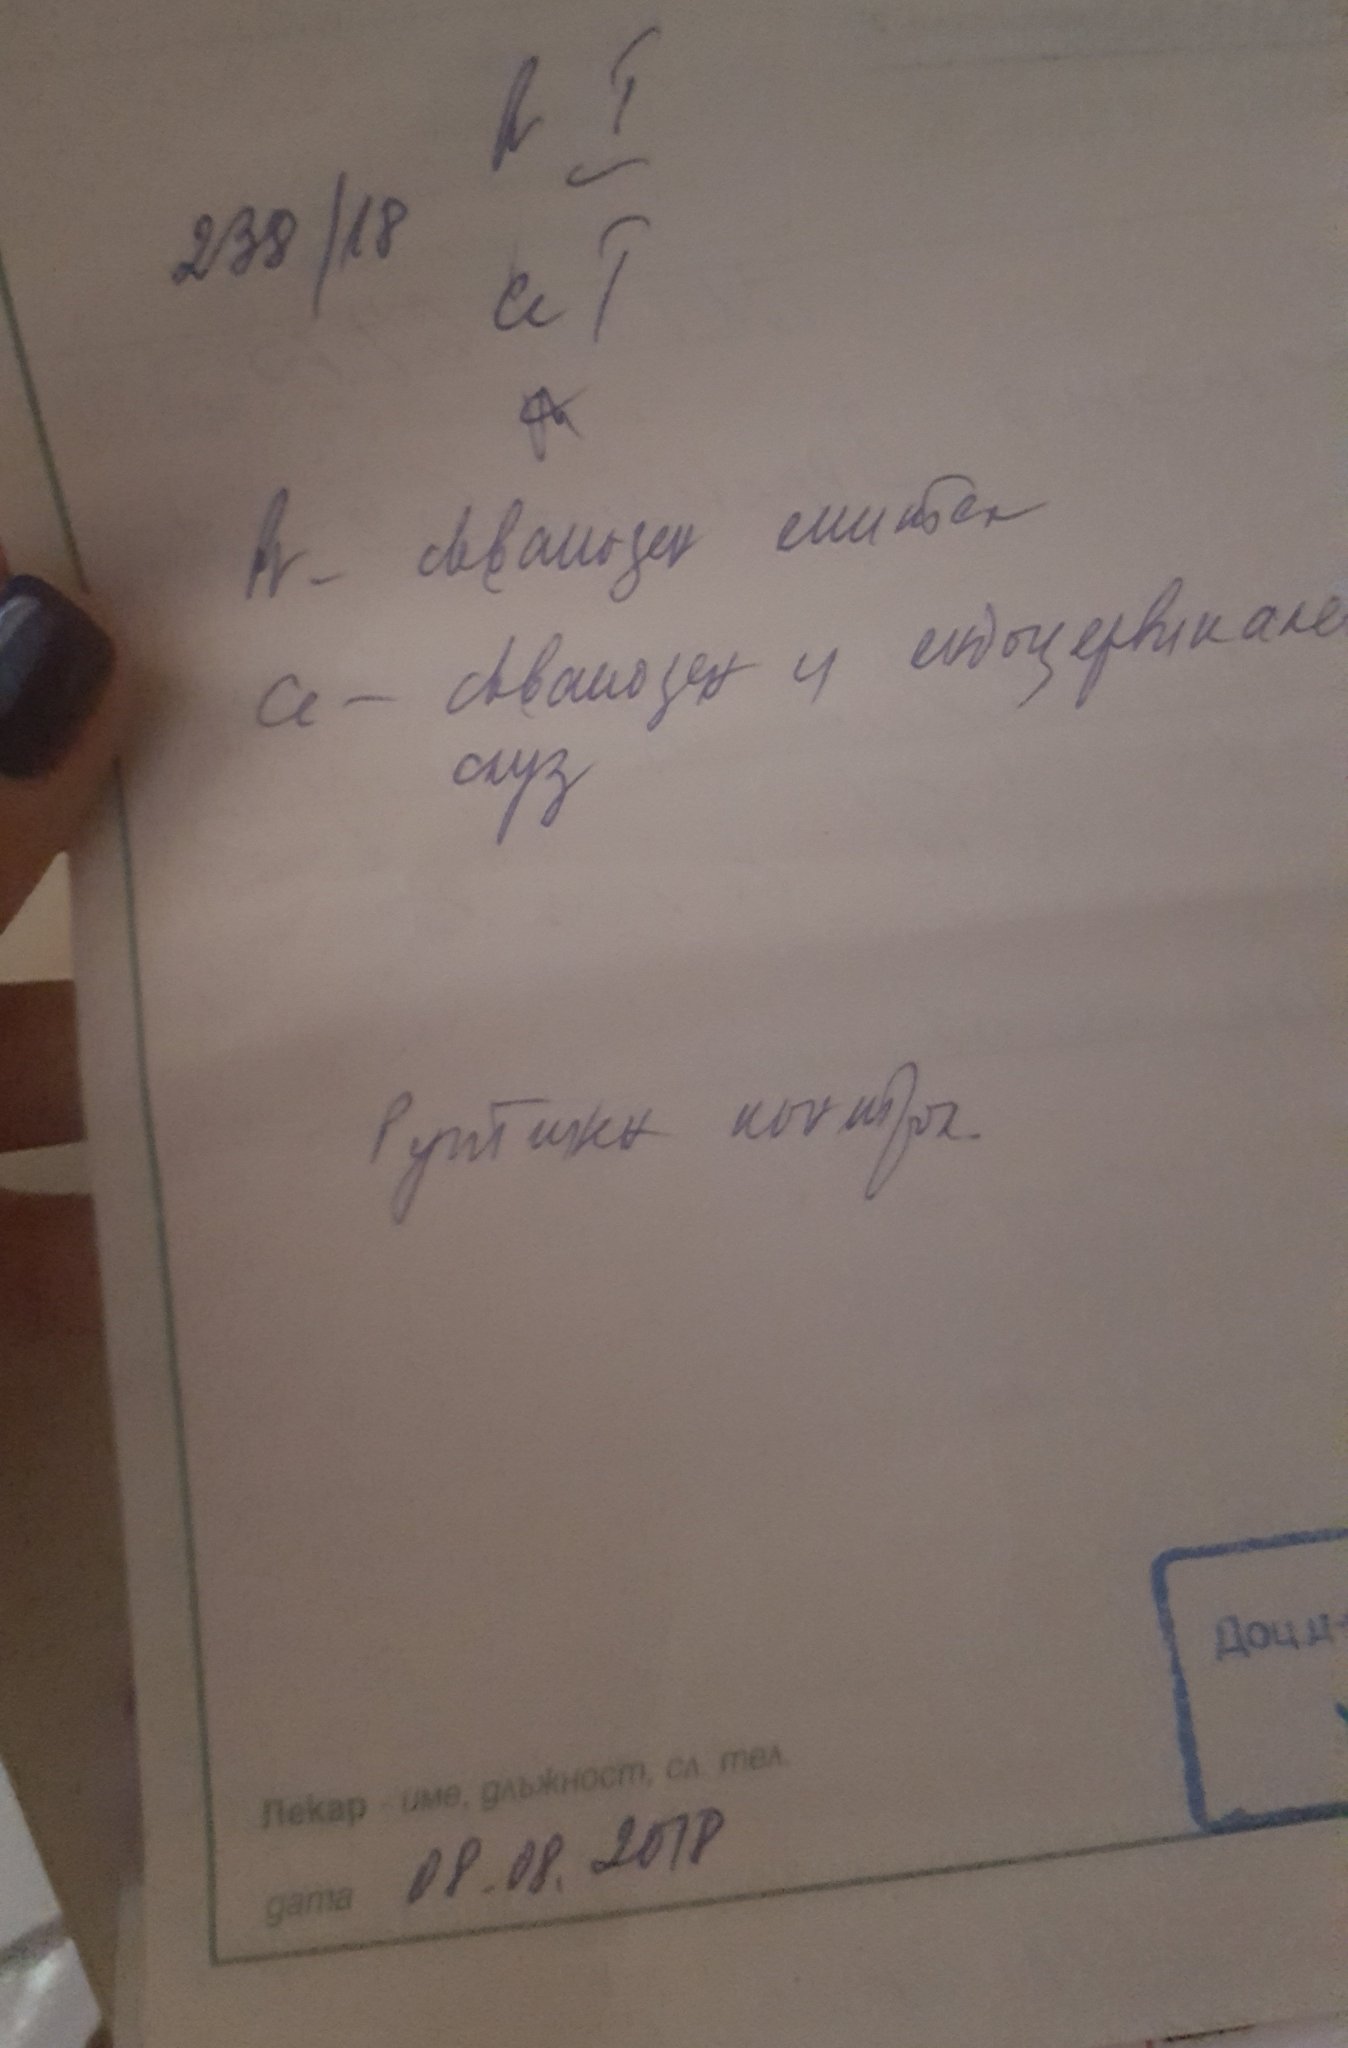 Pr I
238/18
Ce I
Pr - сквамозен епител
Ce - сквамозен и ендоцервикален
слуз
Рутинен контрол
Доц. д-
Лекар - име, длъжност, сл. тел.
дата 08.08.2018